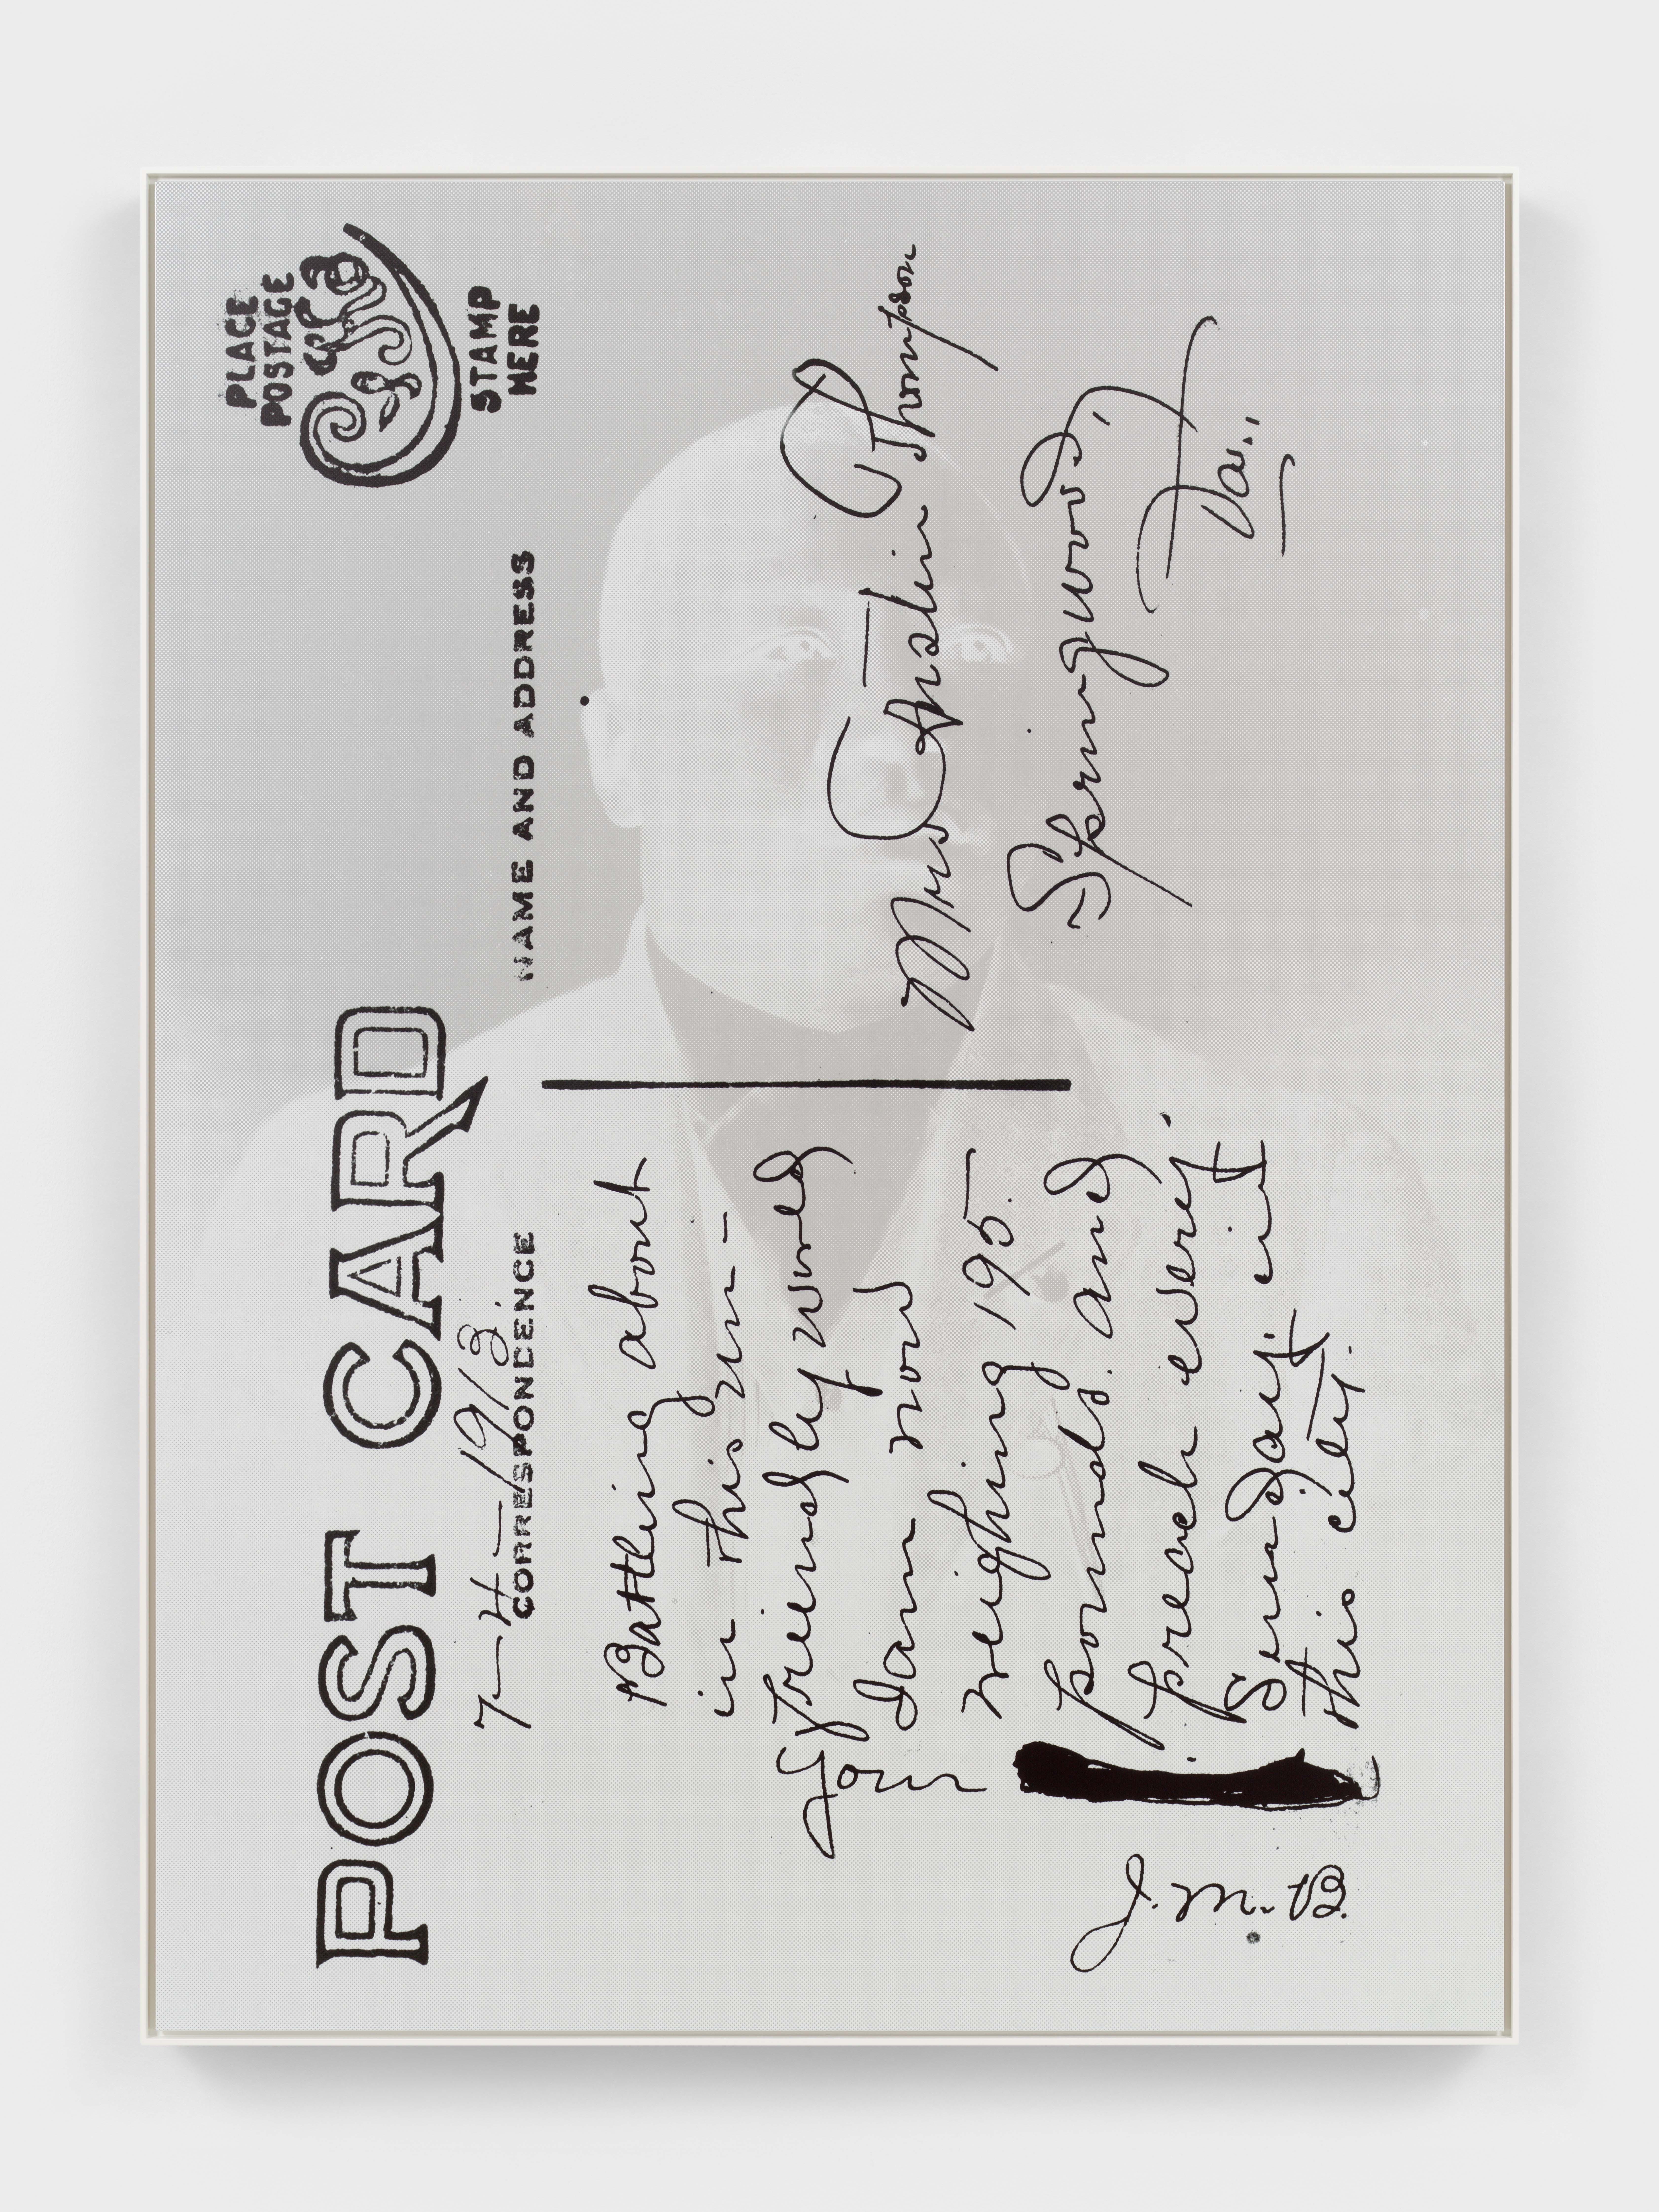 PLACE
POSTAGE
STAMP
HERE
POST CARD
7-4-1913.
CORRESPONDENCE
NAME AND ADDRESS
Battling about
in this un-
friendly world
I am now
weighing 195.
pounds. and
preach every
Sunday. in
this city.
Your
J. M. B.
Mrs Thompson
Springwood,
Va.,